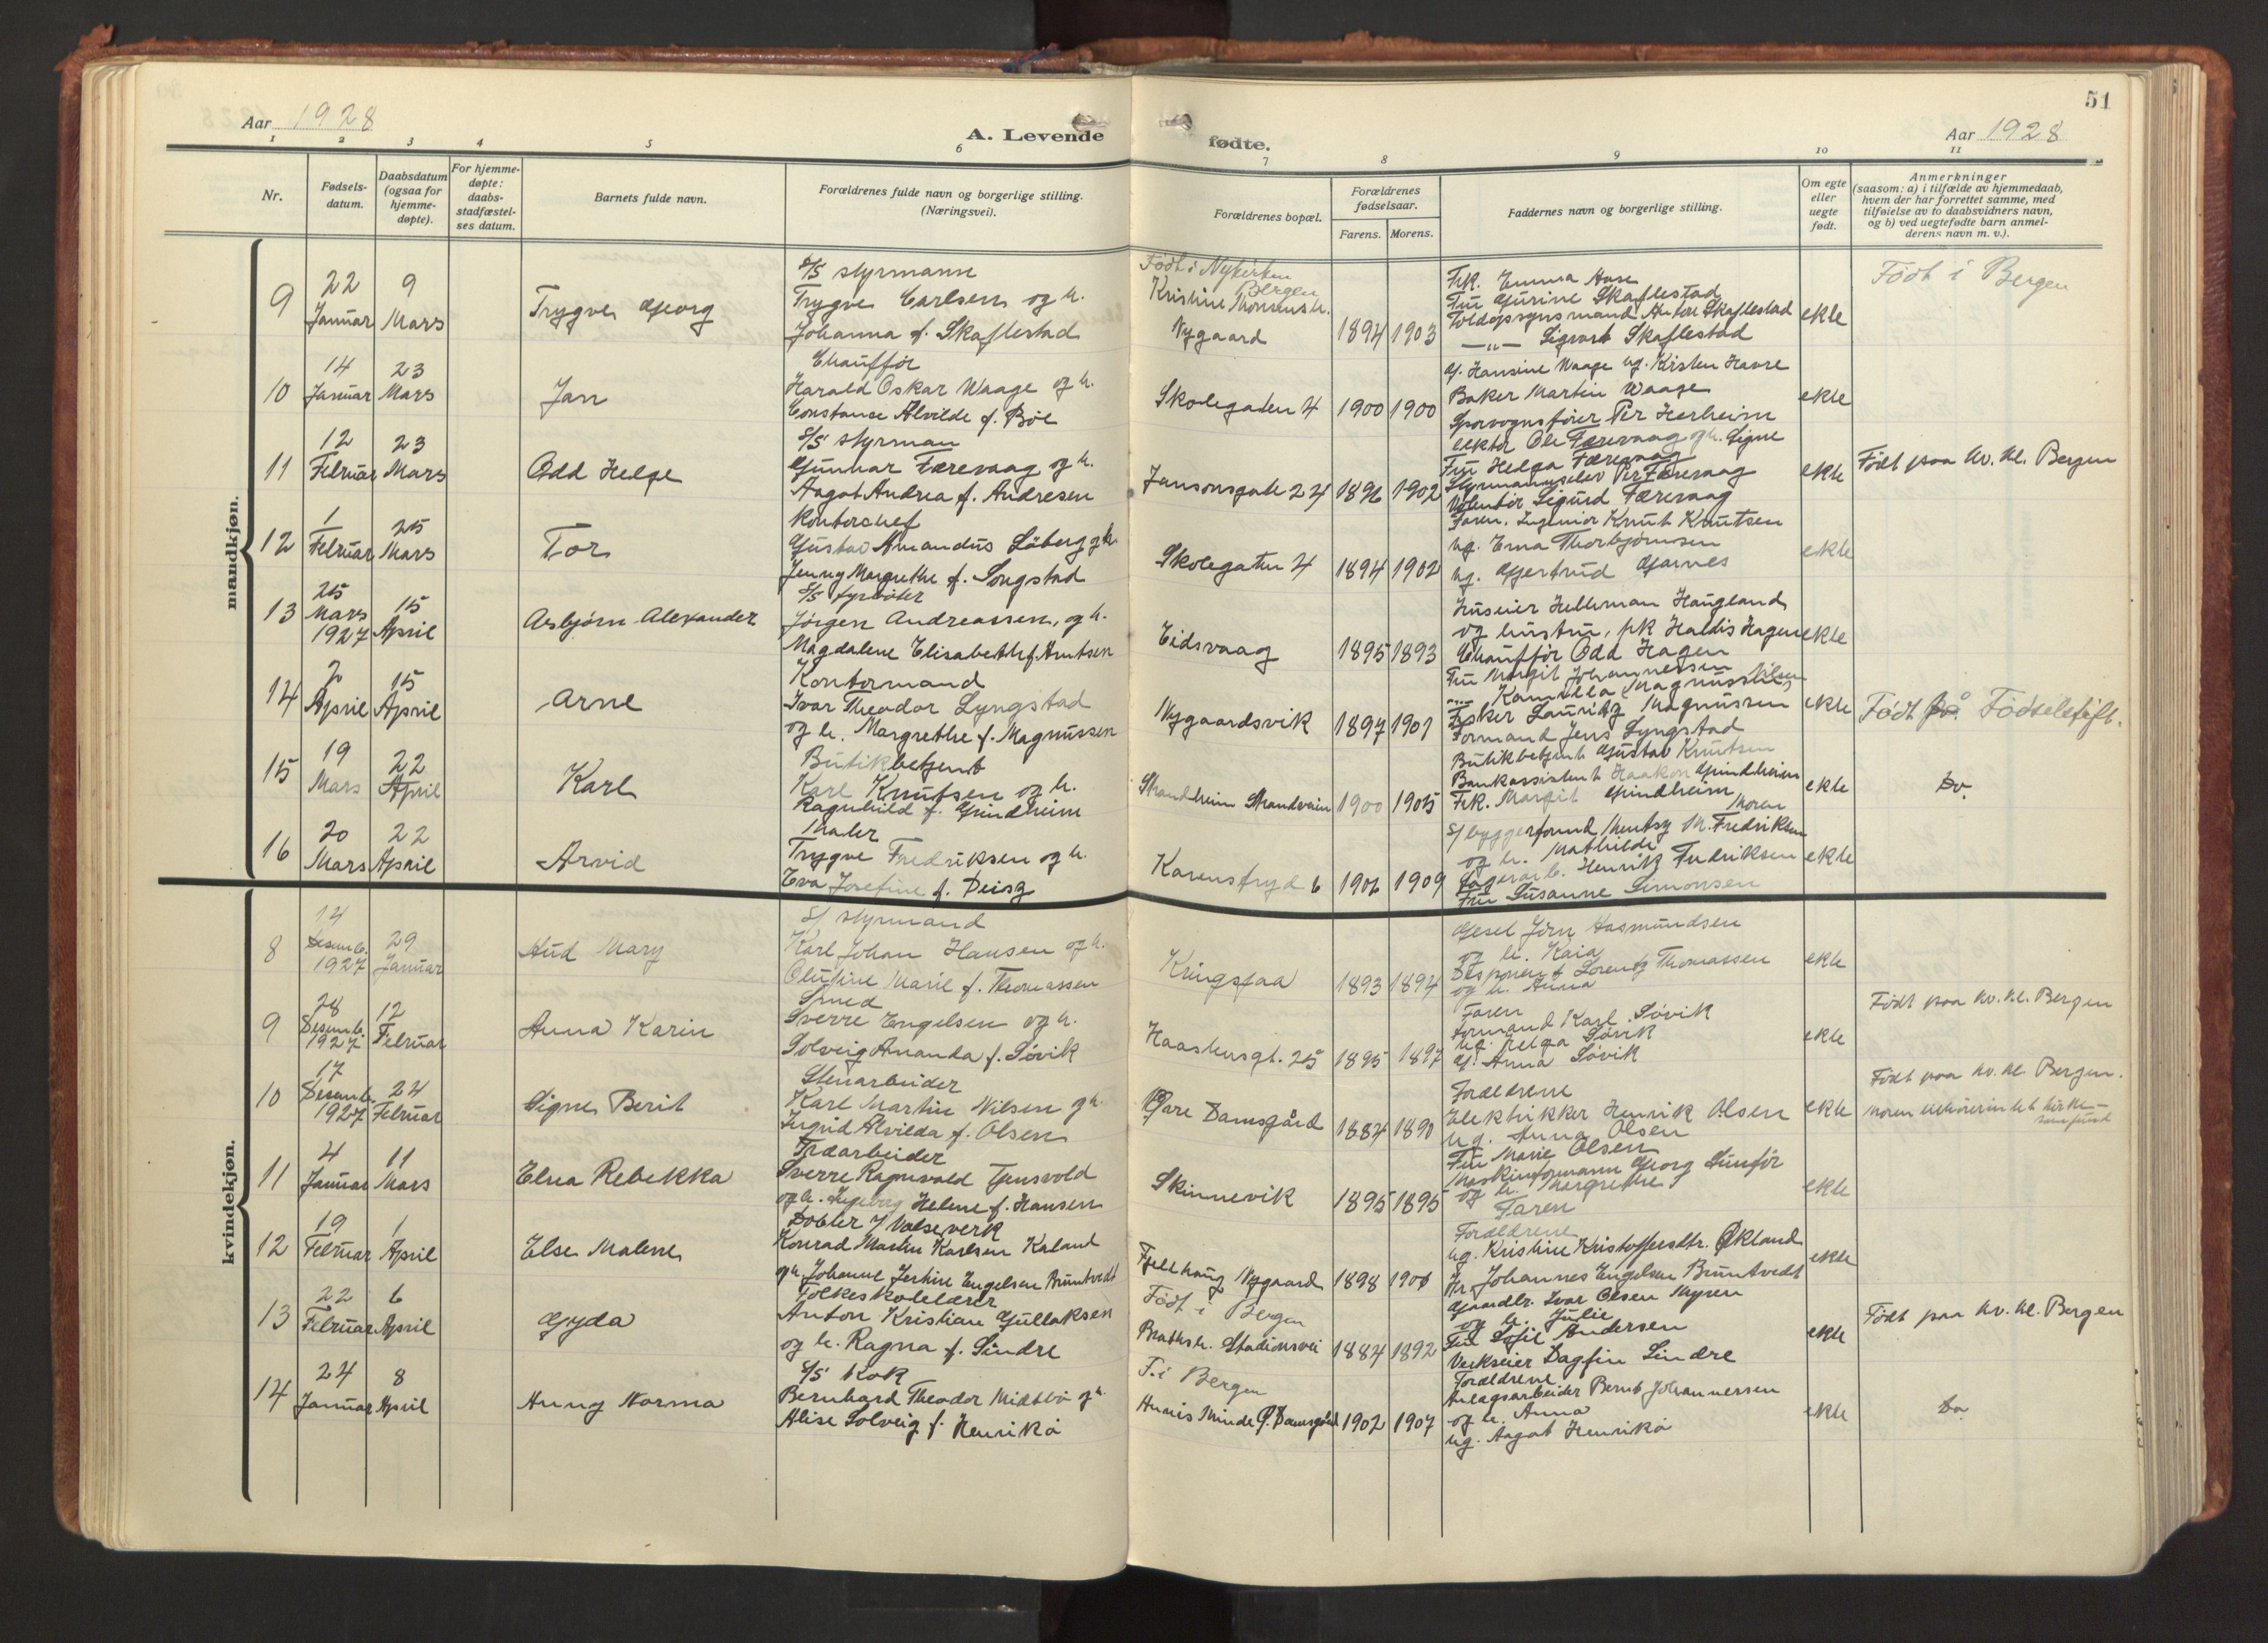 51
Aar 1928
A. Levende
fødte.
Aar 1928
1 2 3 4 5 6 7 8 9 10 11
Nr.
Fødsels-
datum.
Daabsdatum
(ogsaa for
hjemme-
døpte).
For hjemme-
døpte:
daabs-
stadfæstel-
ses datum.
Barnets fulde navn.
Forældrenes fulde navn og borgerlige stilling.
(Næringsvei).
Forældrenes bopæl.
Forældrenes
fødselsaar.
Farens. Morens.
Faddernes navn og borgerlige stilling.
Om egte
eller
uegte
født.
Anmerkninger
(saasom: a) i tilfælde av hjemmedaab,
hvem der har forrettet samme, med
tilføielse av to daabsvidners navn,
og b) ved uegtefødte barn anmel-
derens navn m. v.).
mandkjøn.
9
22
Januar
9
Mars
Trygve Georg
S/S styrmann
Trygve Carlsen og h.
Johanna f. Skaflestad
Født i Nykirken
Bergen
Kristine
Nygaard
1894 1903
Frk. Emma Aase
Fru Gurine Skaflestad
Toldopsynsmand Anton Skaflestad
—"— Sigvart Skaflestad
ekte
Født i Bergen
10
14
Januar
23
Mars
Jan
Chauffør
Harald Oskar Waage og h.
Constance Alvilde f. Bøe
Skolegaten 4
1900 1900
G. Hansine Waage ug. Kirsten Havre
Baker Martin Waage
Sporvognsfører Per Herheim
ekte
11
12
Februar
23
Mars
Odd Helge
S/S styrman
Gunnar Færevaag og h.
Aagot Andrea f. Andresen
Jansonsgate 24
1896 1902
Lektor Ole Færevaag og h. Signe
Fru Helga Færevaag
Styrmannselev Per Færevaag
Volontør Sigurd Færevaag
ekte
Født paa kv. kl. Bergen
12
1
Februar
25
Mars
Tor
Kontorchef
Gustav Amandus Løberg og h.
Jenny Margrethe f. Songstad
Skolegaten 4
1894 1902
Faren. Ingeniør Knut Knutsen
ug. Erna Thorbjørnsen
ug. Gjertrud Garnes
ekte
13
25
Mars
1927
15
April
Asbjørn Alexander
S/S fyrbøter
Jørgen Andreassen, og h.
Magdalene Elisabeth f. Arntsen
Eidsvaag
1895 1893
Huseier Hellerman Haugland
og hustru, frk Haldis Hagen
Chauffør Odd Hagen
ekte
14
2
April
15
April
Arne
Kontormand
Ivar Theodor Lyngstad
og h. Margrethe f. Magnussen
Nygaardsvik
1897 1901
Fru Margit Johannessen
—"— Kamilla Magnussen
Fisker Lauritz Magnussen
Formand Jens Lyngstad
ekte
Født på Fødselsstift.
15
19
Mars
22
April
Karl
Butikbetjent
Karl Knutsen og h.
Ragnhild f. Grindheim
Strandheim Strandveien
1900 1905
Butikbetjent Gustav Knutsen
Bankassistent Haakon Grindheim
Frk. Margit Grindheim
ekte
Do.
16
20
Mars
22
April
Arvid
Maler
Trygve Fredriksen og h.
Eva Josefine f. Deisz
Karensfryd 6
1906 1909
Moren
S/byggerformd Mentz M. Fredriksen
og h. Mathilde
Lagerarb. Henrik Fredriksen
Fru Susanne Simonsen
ekte
kvindekjøn.
8
14
Desemb.
1927
29
Januar
Aud Mary
S/ styrmand
Karl Johan Hansen og h.
Olufine Marie f. Thomassen
Kringsjaa
1893 1894
Gesel Jørn Aasmundsen
og h. Kaia
Disponent Lorentz Thomassen
og h. Anna
ekte
9
28
Desemb.
1927
12
Februar
Anna Karin
Smed
Sverre Engelsen og h.
Solveig Amanda f. Søvik
Haakonsgt. 25
1895 1897
Faren
Formand Karl Søvik
ug. Helga Søvik
G. Anna Søvik
ekte
Født paa kv. kl. Bergen
10
17
Desemb.
1927
24
Februar
Signe Berit
Stenarbeider
Karl Martin Nilsen og h
Ingrid Alvilda f. Olsen
Øvre Damsgård
1884 1890
Forældrene
Elektrikker Henrik Olsen
ug. Anna Olsen
Fru Marie Olsen
ekte
Født paa kv. kl. Bergen.
Moren tilhører intet kirke-
samfund
11
4
Januar
11
Mars
Elna Rebekka
Træarbeider
Sverre Ragnvald Tjensvold
og h. Ingeborg Helene f. Hansen
Skinnevik
1895 1895
Maskinformann Georg Sunfør
og h. Margrethe
Faren
ekte
12
19
Februar
1
April
Else Malene
Dobler v/ Valseverk
Konrad Martin Karlsen Kaland
og h. Johanne Jertine Engelsen Bruntvedt
Fjellhaug Nygaard
1898 1906
Forældrene
ug. Kristine Kristoffersdtr. Økland
Hr Johannes Engelsen Bruntvedt
ekte
13
22
Februar
6
April
Gyda
Folkeskolelærer
Anton Kristian Gullaksen
og h. Ragna f. Sindre
Født i
Bergen
Stadionsvei
1884 1892
Gaardbr. Ivar Olsen Myren
og h. Julie
Fru Sofie Andersen
Verkseier Dagfin Sindre
ekte
Født paa kv. kl. Bergen
14
24
Januar
8
April
Anny Norma
S/S kok
Bernhard Theodor Midtbø og h.
Alise Solveig f. Henrikø
F. i Bergen
Minde Ø. Damsgård
1902 1907
Forældrene
Anlægsarbeider Bernt Johannessen
og h. Anna
ug. Aagot Henrikø
ekte
Do